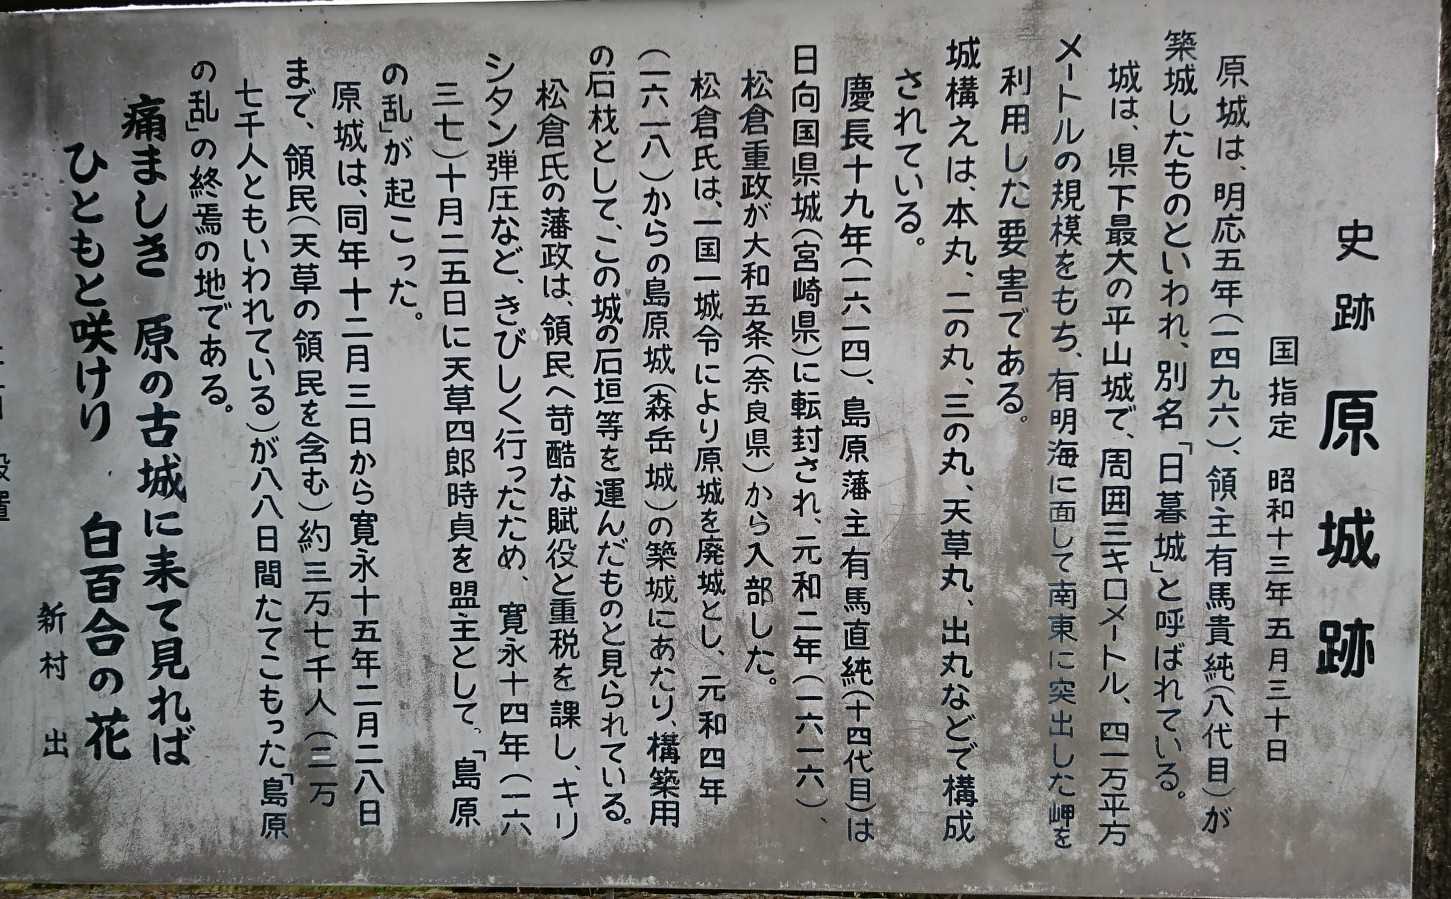 史跡 原城跡
国指定 昭和十三年五月三十日
原城は、明応五年(一四九六)、領主有馬貴純(八代目)が
築城したものといわれ、別名「日暮城」と呼ばれている。
城は、県下最大の平山城で、周囲三キロメートル、四一万平方
メートルの規模をもち、有明海に面して南東に突出した岬を
利用した要害である。
城構えは、本丸、二の丸、三の丸、天草丸、出丸などで構成
されている。
慶長十九年(一六一四)、島原藩主有馬直純(十四代目)は
日向国県城(宮崎県)に転封され、元和二年(一六一六)、
松倉重政が大和五条(奈良県)から入部した。
松倉氏は、一国一城令により原城を廃城とし、元和四年
(一六一八)からの島原城(森岳城)の築城にあたり、構築用
の石材として、この城の石垣等を運んだものと見られている。
松倉氏の藩政は、領民へ苛酷な賦役と重税を課し、キリ
シタン弾圧など、きびしく行ったため、寛永十四年(一六
三七)十月二五日に天草四郎時貞を盟主として、「島原
の乱」が起こった。
原城は、同年十二月三日から寛永十五年二月二八日
まで、領民(天草の領民を含む)約三万七千人(三万
七千人ともいわれている)が八八日間たてこもった「島原
の乱」の終焉の地である。
痛ましき 原の古城に来て見れば
ひともと咲けり 白百合の花
新村出
設置